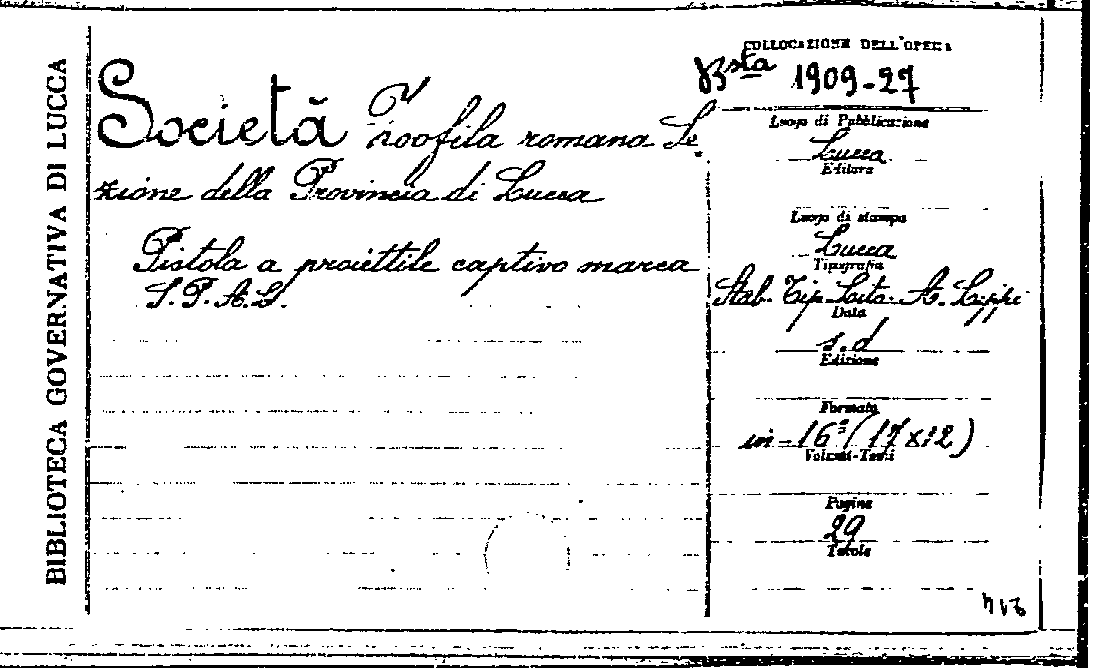 BIBLIOTECA GOVERNATIVA DI LUCCA
COLLOCAZIONE DELL'OPERA
Bsta 1909-27
Società Zoofila romana Se
zione della Provincia di Lucca
Pistola a proiettile captivo marca
S.P.A.G.
Luogo di Pubblicazione
Lucca
Editore
Luogo di stampa
Lucca
Tipografia
Stab. Tip. Lito. A. Lippi
Data
s.d
Edizione
Formato
in-16º (17x12)
Volumi-Tomi
Pagine
29
Tavole